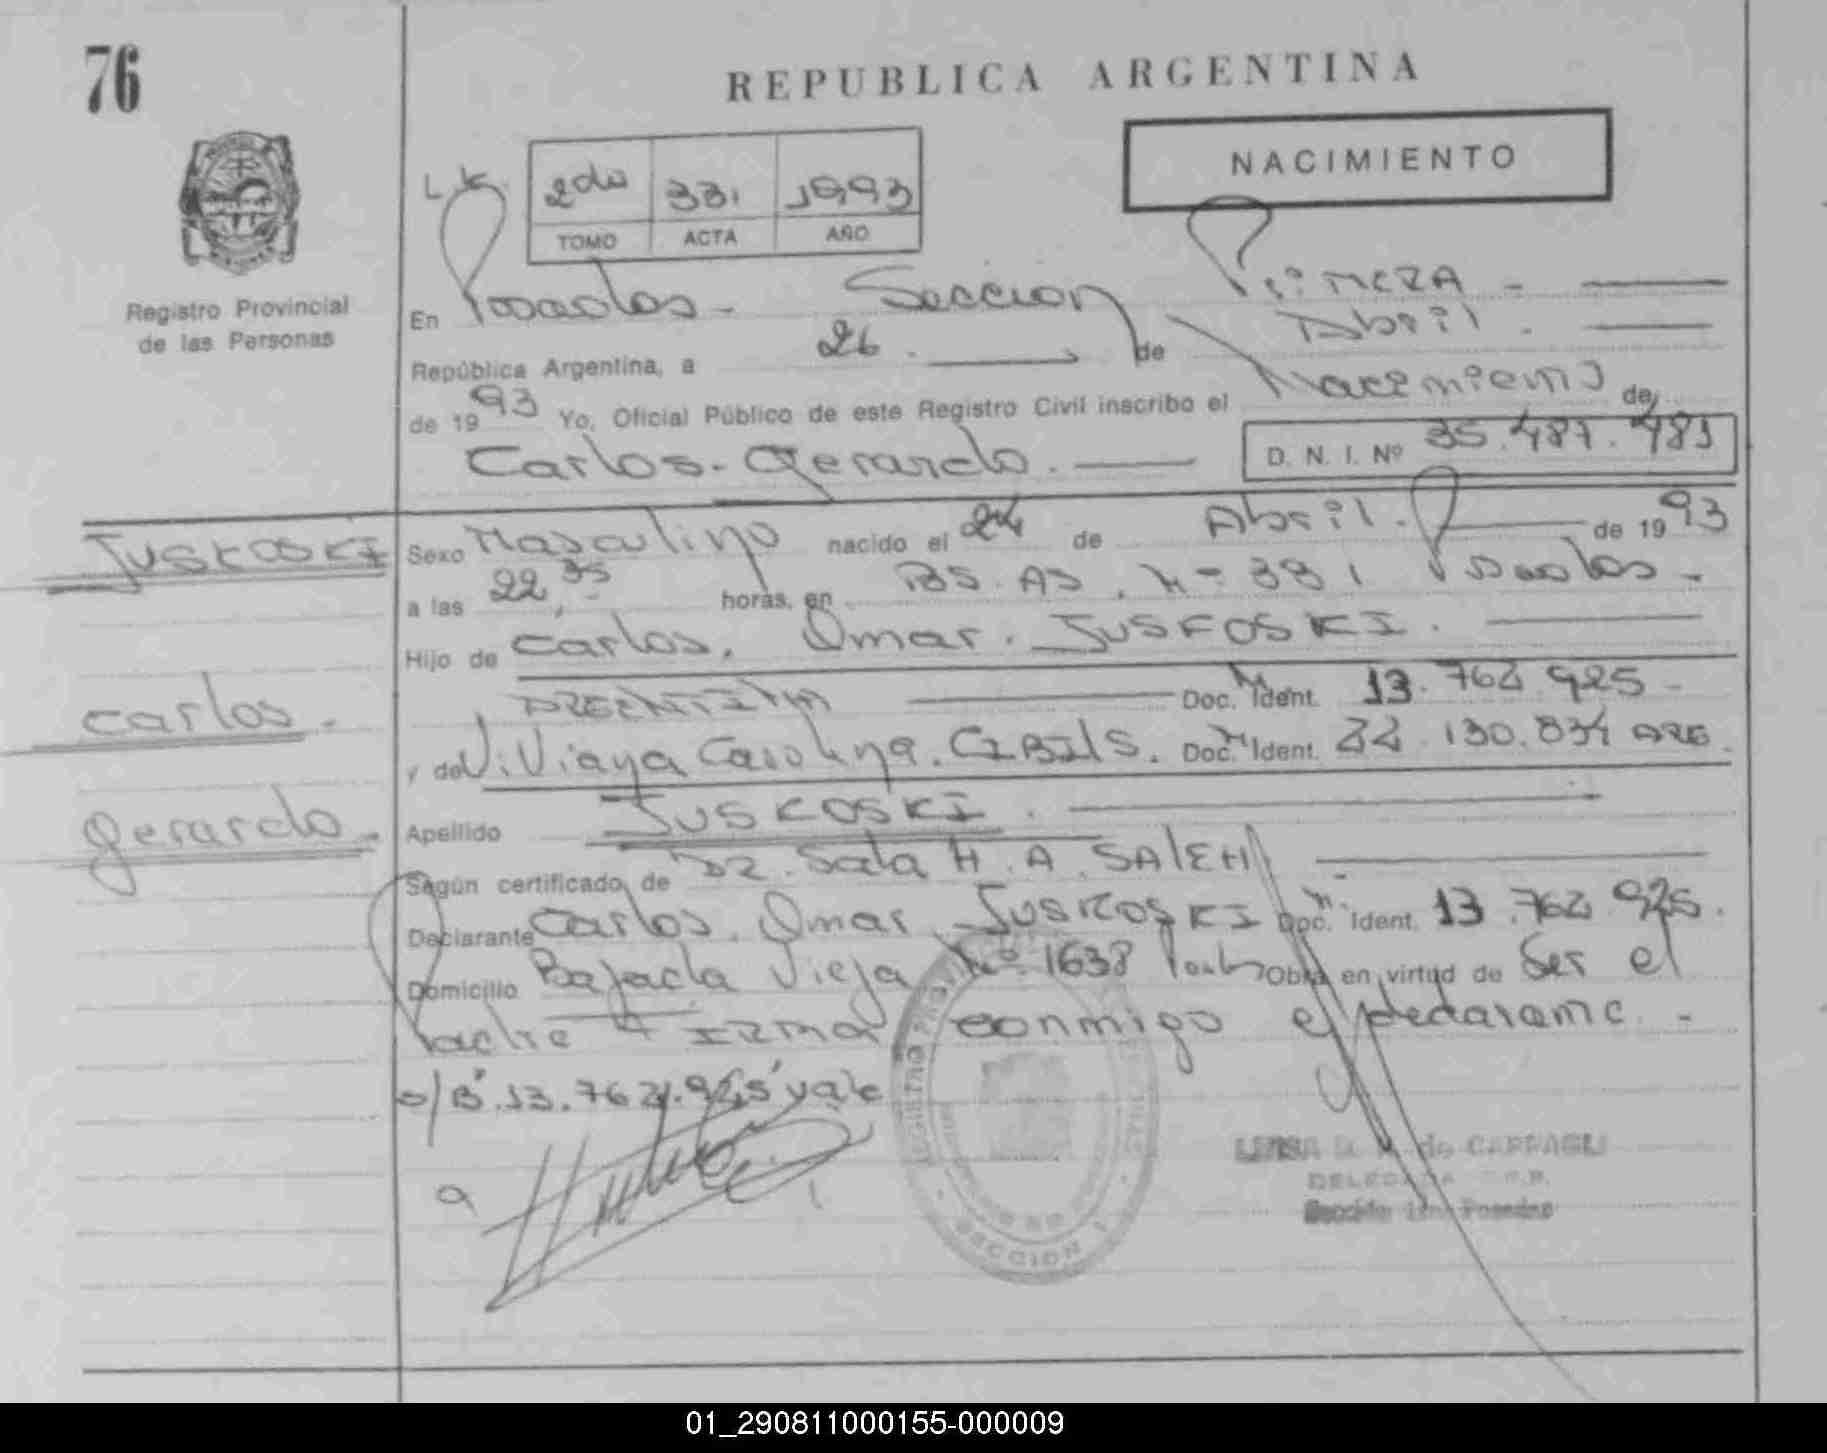 76
REPUBLICA ARGENTINA
NACIMIENTO
2do 331 1993
TOMO ACTA AÑO
Registro Provincial
de las Personas
En Posadas - Sección Primera -
República Argentina, a 26 de Abril.
de 1993 Yo, Oficial Público de este Registro Civil inscribo el Nacimiento de
Carlos - Gerardo. D. N. I. Nº 35.487.481
JUSKOSKI
Carlos.
Gerardo.
Sexo Masculino nacido el 24 de Abril. de 1993
a las 22,35 horas, en BS. AS. Nº 331 Posadas -
Hijo de Carlos. Omar. JUSKOSKI.
ARGENTINA Doc. M Ident. 13.762.925 -
y de Viviana Carolina. CIBILS. Doc. M Ident. 22.130.834 ARG.
Apellido JUSKOSKI.
Según certificado de DR. Sala H. A. SALEH
Declarante Carlos. Omar JUSKOSKI Doc. M. Ident. 13.762.925.
Domicilio Bajada Vieja Nº 1638 Obra en virtud de Ser el
Padre y FIRMA conmigo el declarante. -
s/B. 13.762.925 vale
REGISTRO PROVINCIAL
SECCION 1
de CARPAGLI
DELEGADA
Sección 1ra Posadas
01_290811000155-000009